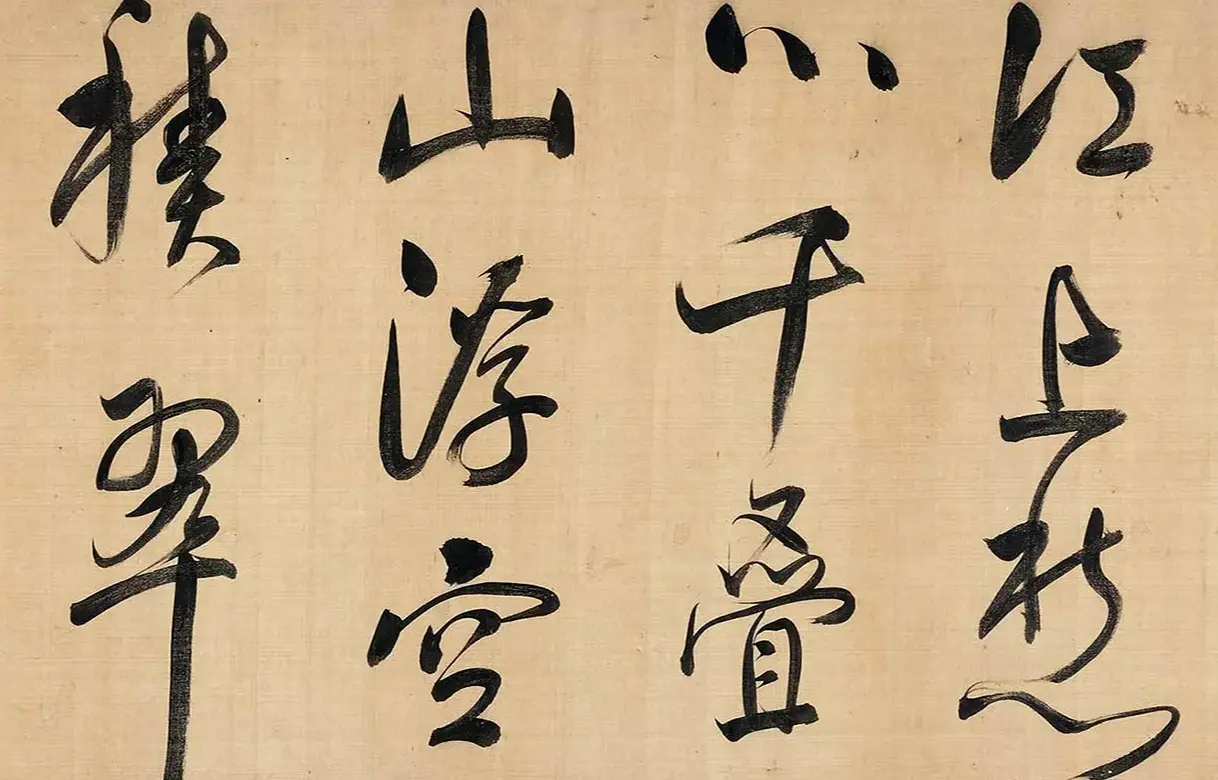 江上愁
心千叠
山浮空
積翠